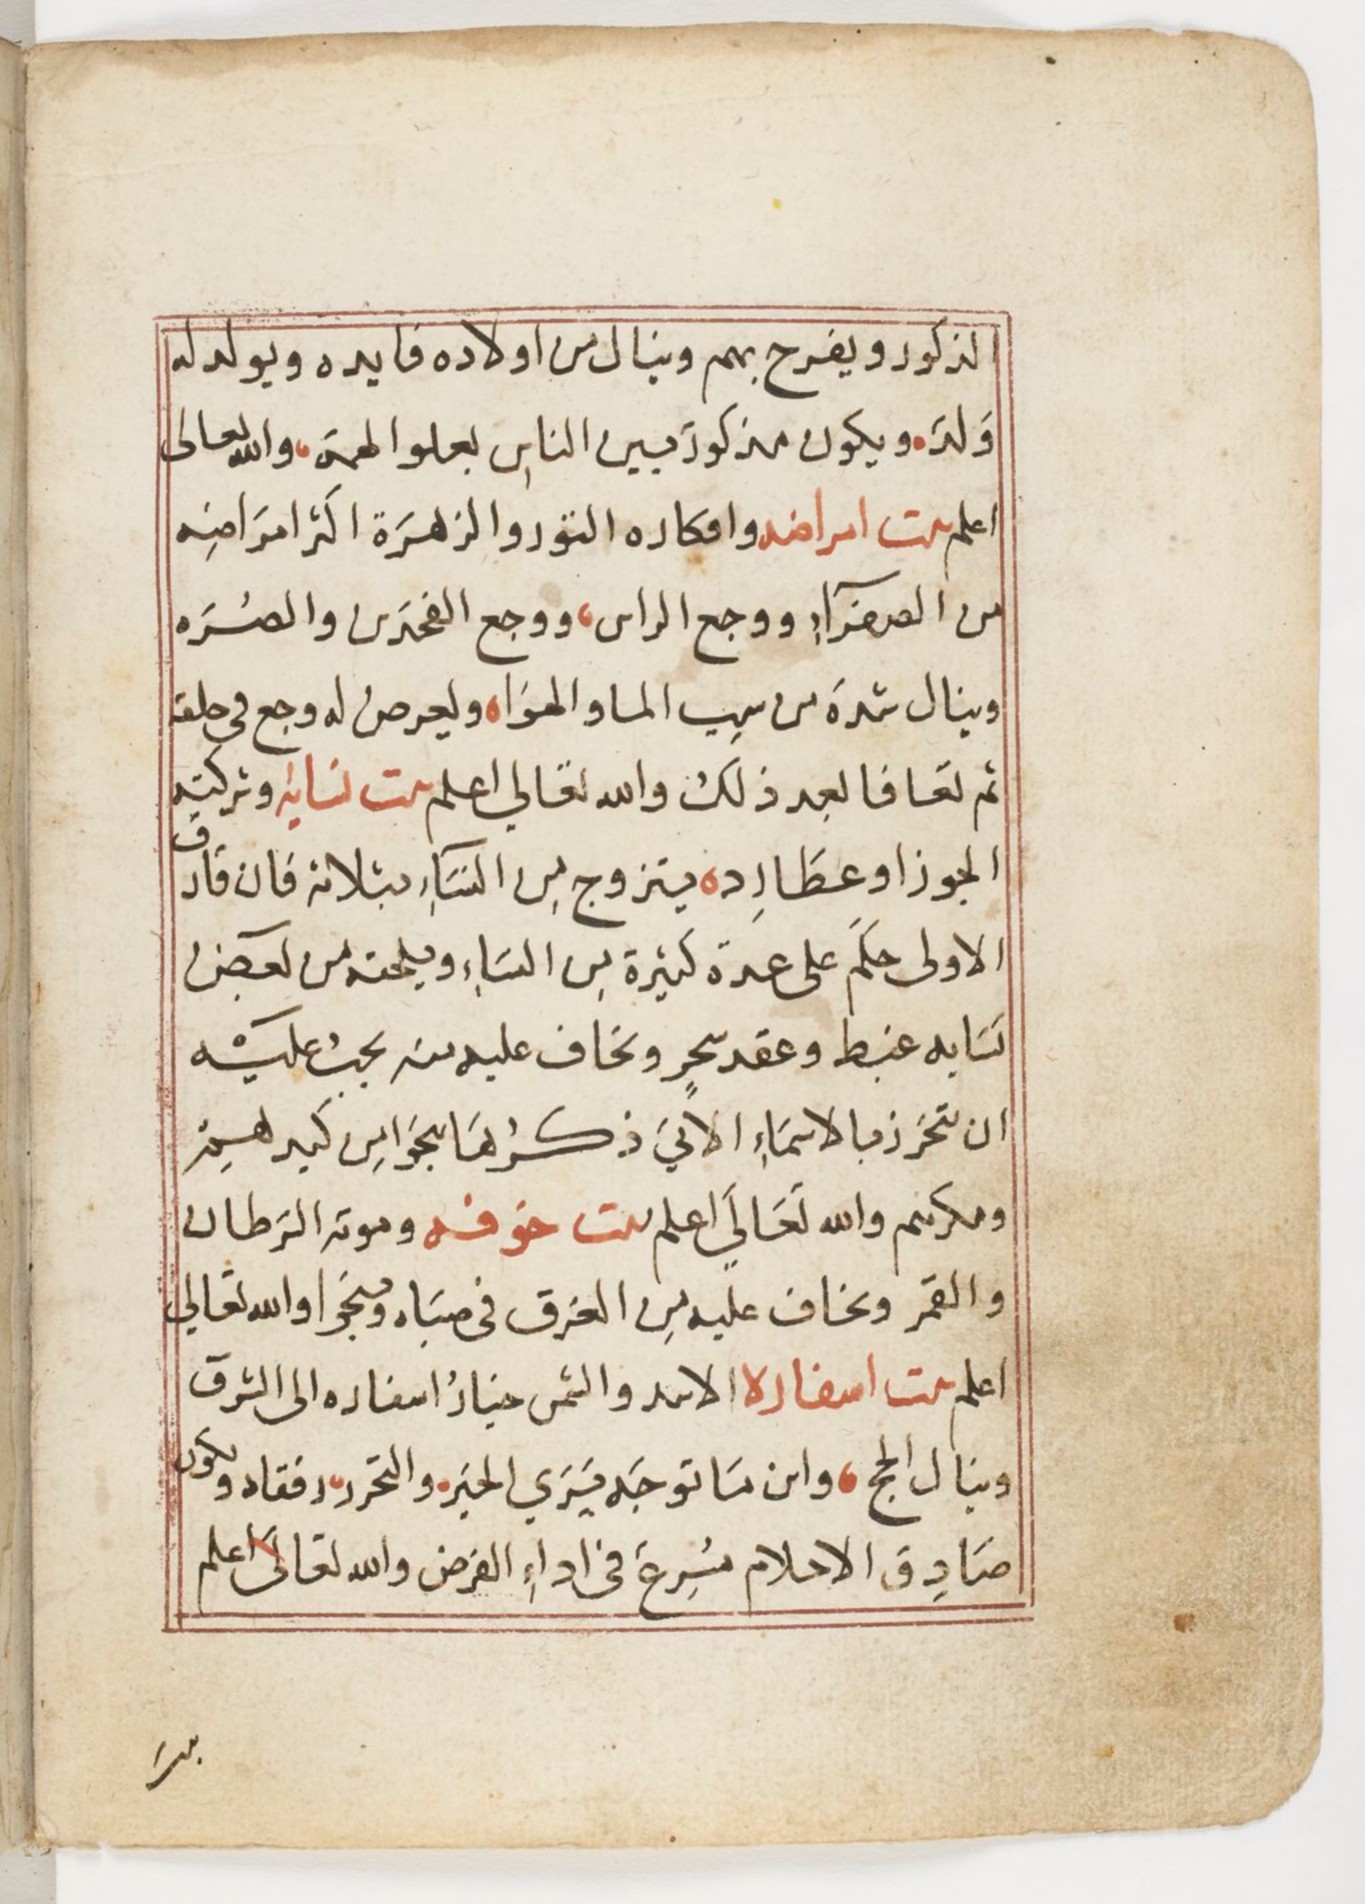 الذكور ويفرح بهم وينال من اولاده فايده ويولد له
ولد. ويكون مذكورا بين الناس بعلوا لهمة، والله تعالى
اعلم بيت امراضه وافكاره الثور والزهرة اكثر امراضه
من الصفرآء ووجع الراس، ووجع الفخذين والصره
وينال شدة من سبب الما والهوا، وليعرض له وجع في حلقه
ثم تعافا بعد ذلك والله تعالي اعلم بيت نسايه وتركيبه
الجوزا وعطارده يتزوج من النسآء بثلاثة فان فارق
الاولى حكم على عدة كثيرة من النساء ويلحقه من بعض
نسايه غبط وعقد سحر ونخاف عليه منه يجب عليه
ان تحرز بالاسماء الاتي ذكرها ينجوا من كيدهم
ومكرهم والله تعالي اعلم بيت خوفه وموته السرطان
والقمر ونخاف عليه من الغرق في صباه وينجوا والله تعالي
اعلم بيت اسفاره الاسد والشمس خيار اسفاره الى الشرق
وينال الحج، واين ما توجه يري الخير. والتحرر رفقاه ويكون
صادق الاحلام مسرع في اداء الفرض والله تعالى اعلم